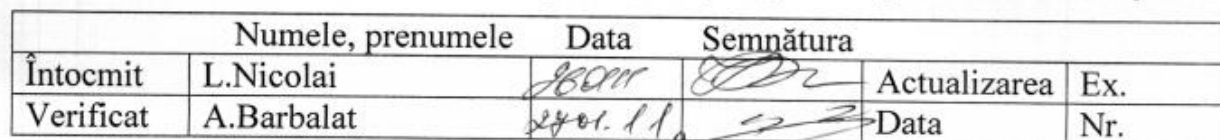 Numele, prenumele Data Semnătura
Întocmit L.Nicolai Actualizarea Ex.
Verificat A.Barbalat 2701.11. Data Nr.